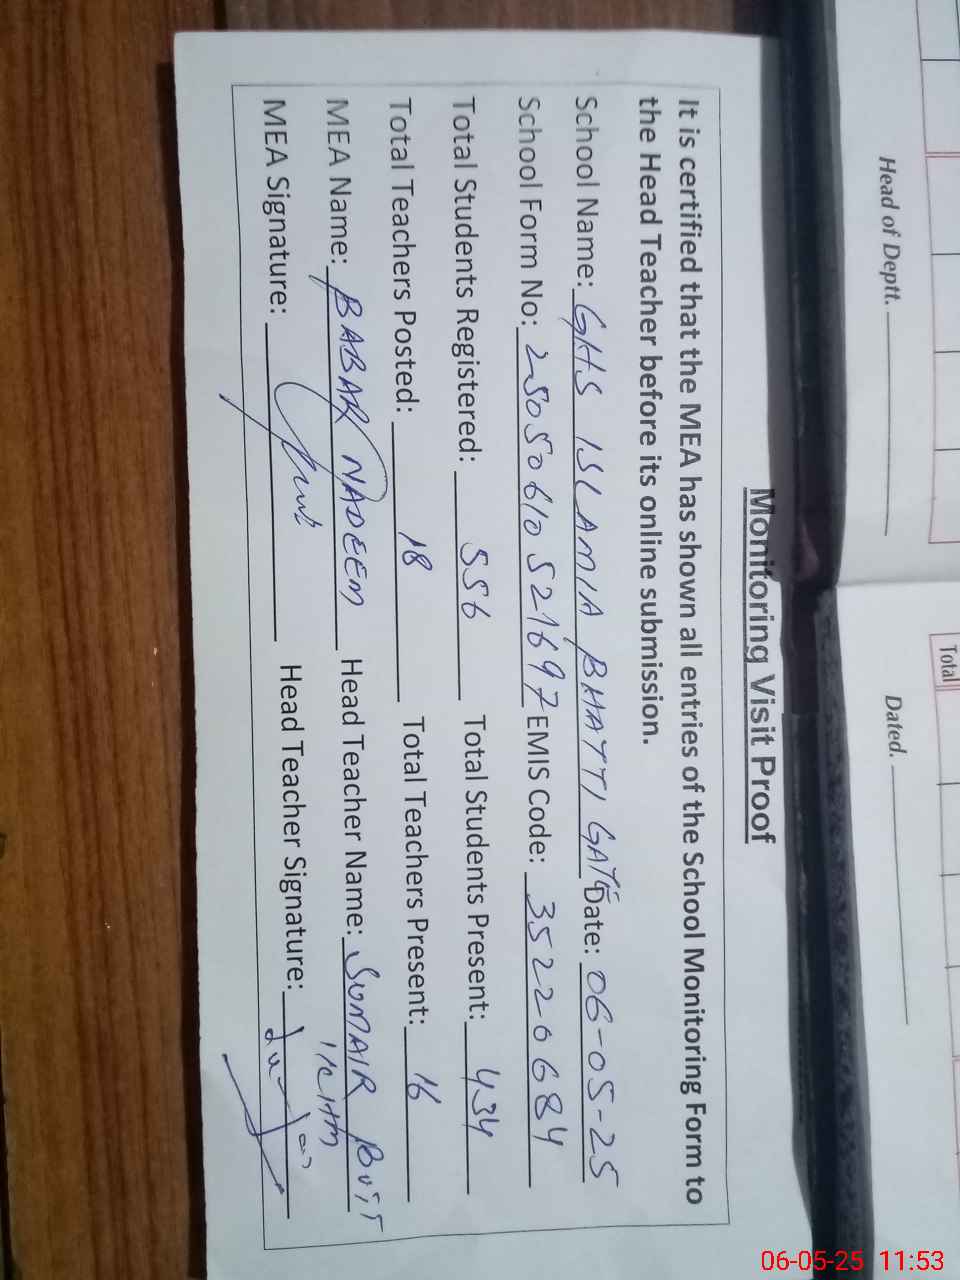 Monitoring Visit Proof
It is certified that the MEA has shown all entries of the School Monitoring Form to
the Head Teacher before its online submission.
School Name: GHS ISLAMIA BHATTI GATE Date: 06-05-25
School Form No: 25050610521697 EMIS Code: 35220684
Total Students Registered: 556 Total Students Present: 434
Total Teachers Posted: 18 Total Teachers Present: 16
MEA Name: BABAR NADEEM Head Teacher Name: SUMAIR BUTT
MEA Signature: Head Teacher Signature:
Head of Deptt.
Dated.
Total
06-05-25 11:53